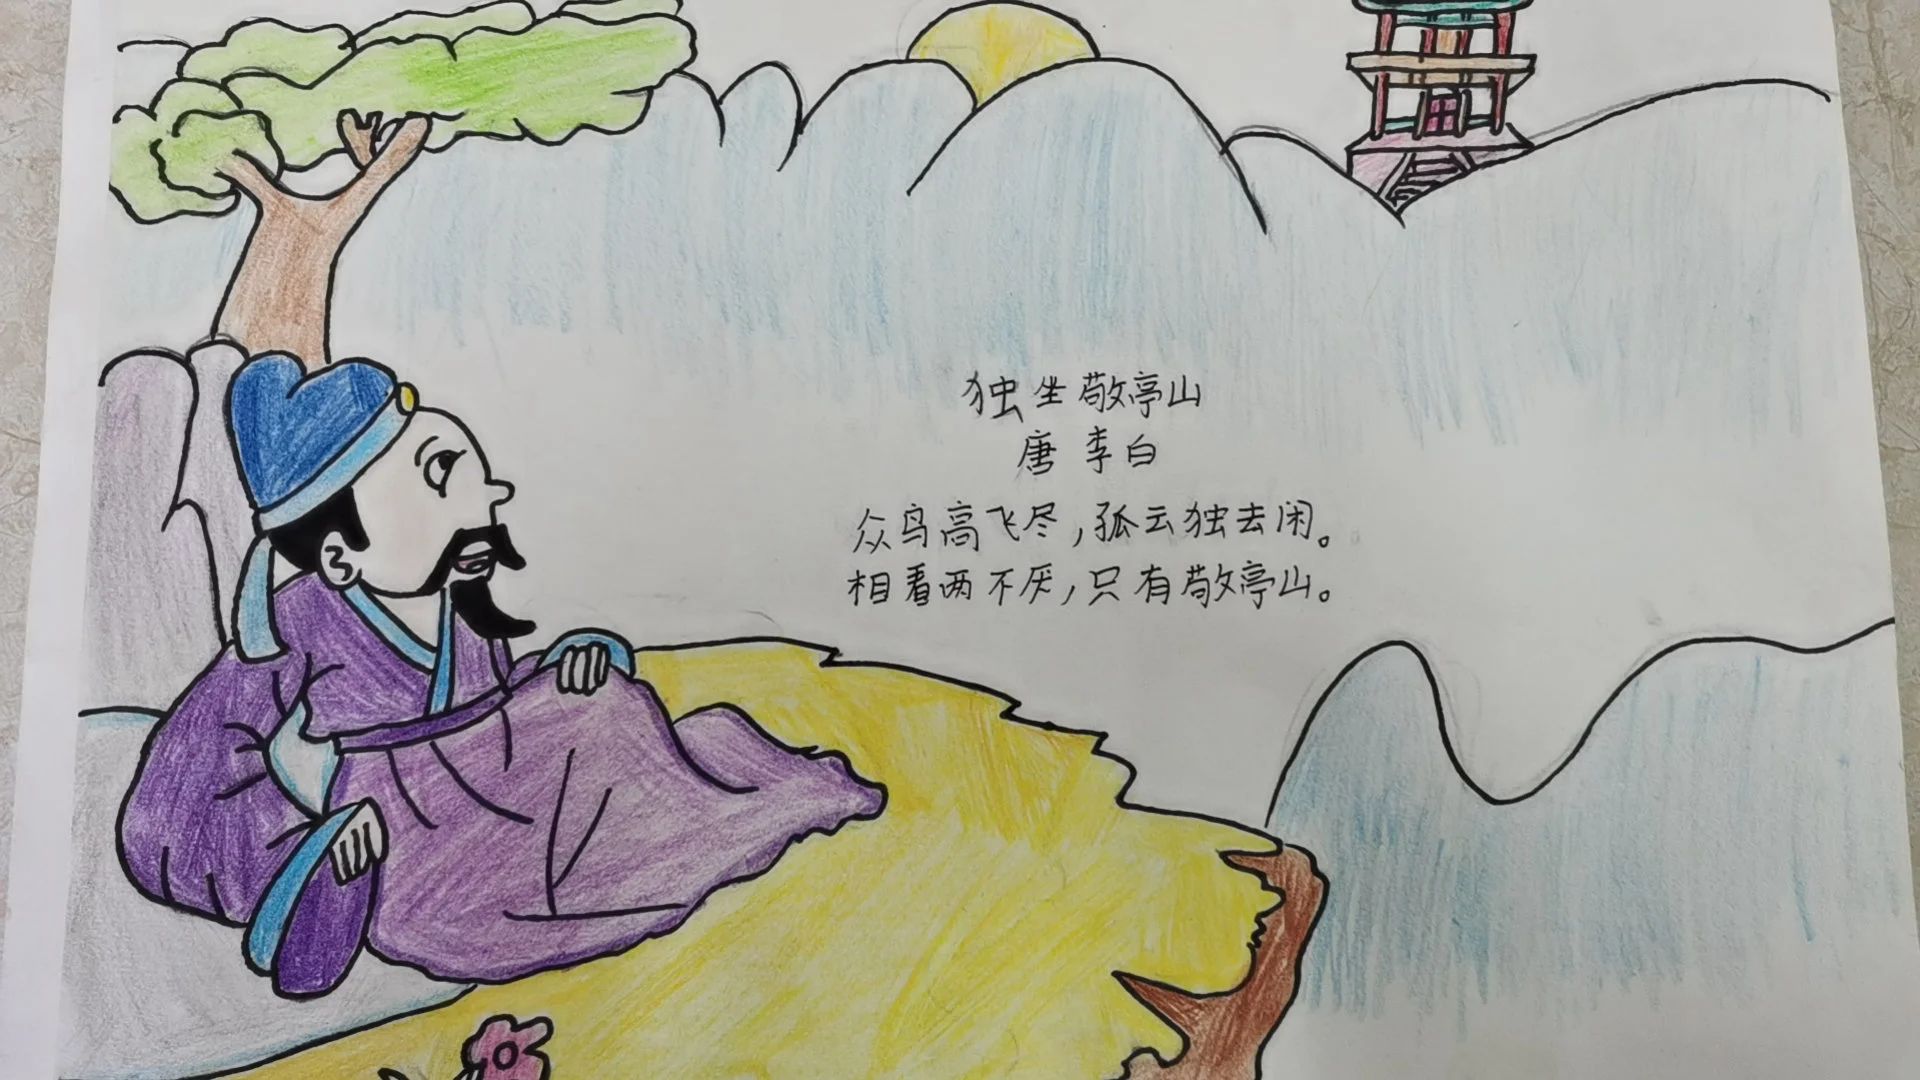 独坐敬亭山
唐 李白
众鸟高飞尽,孤云独去闲。
相看两不厌,只有敬亭山。